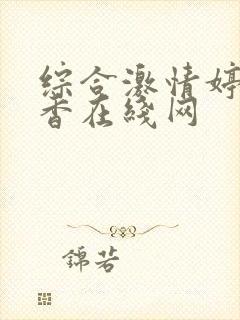 综合激情婷
香在线网
锦若